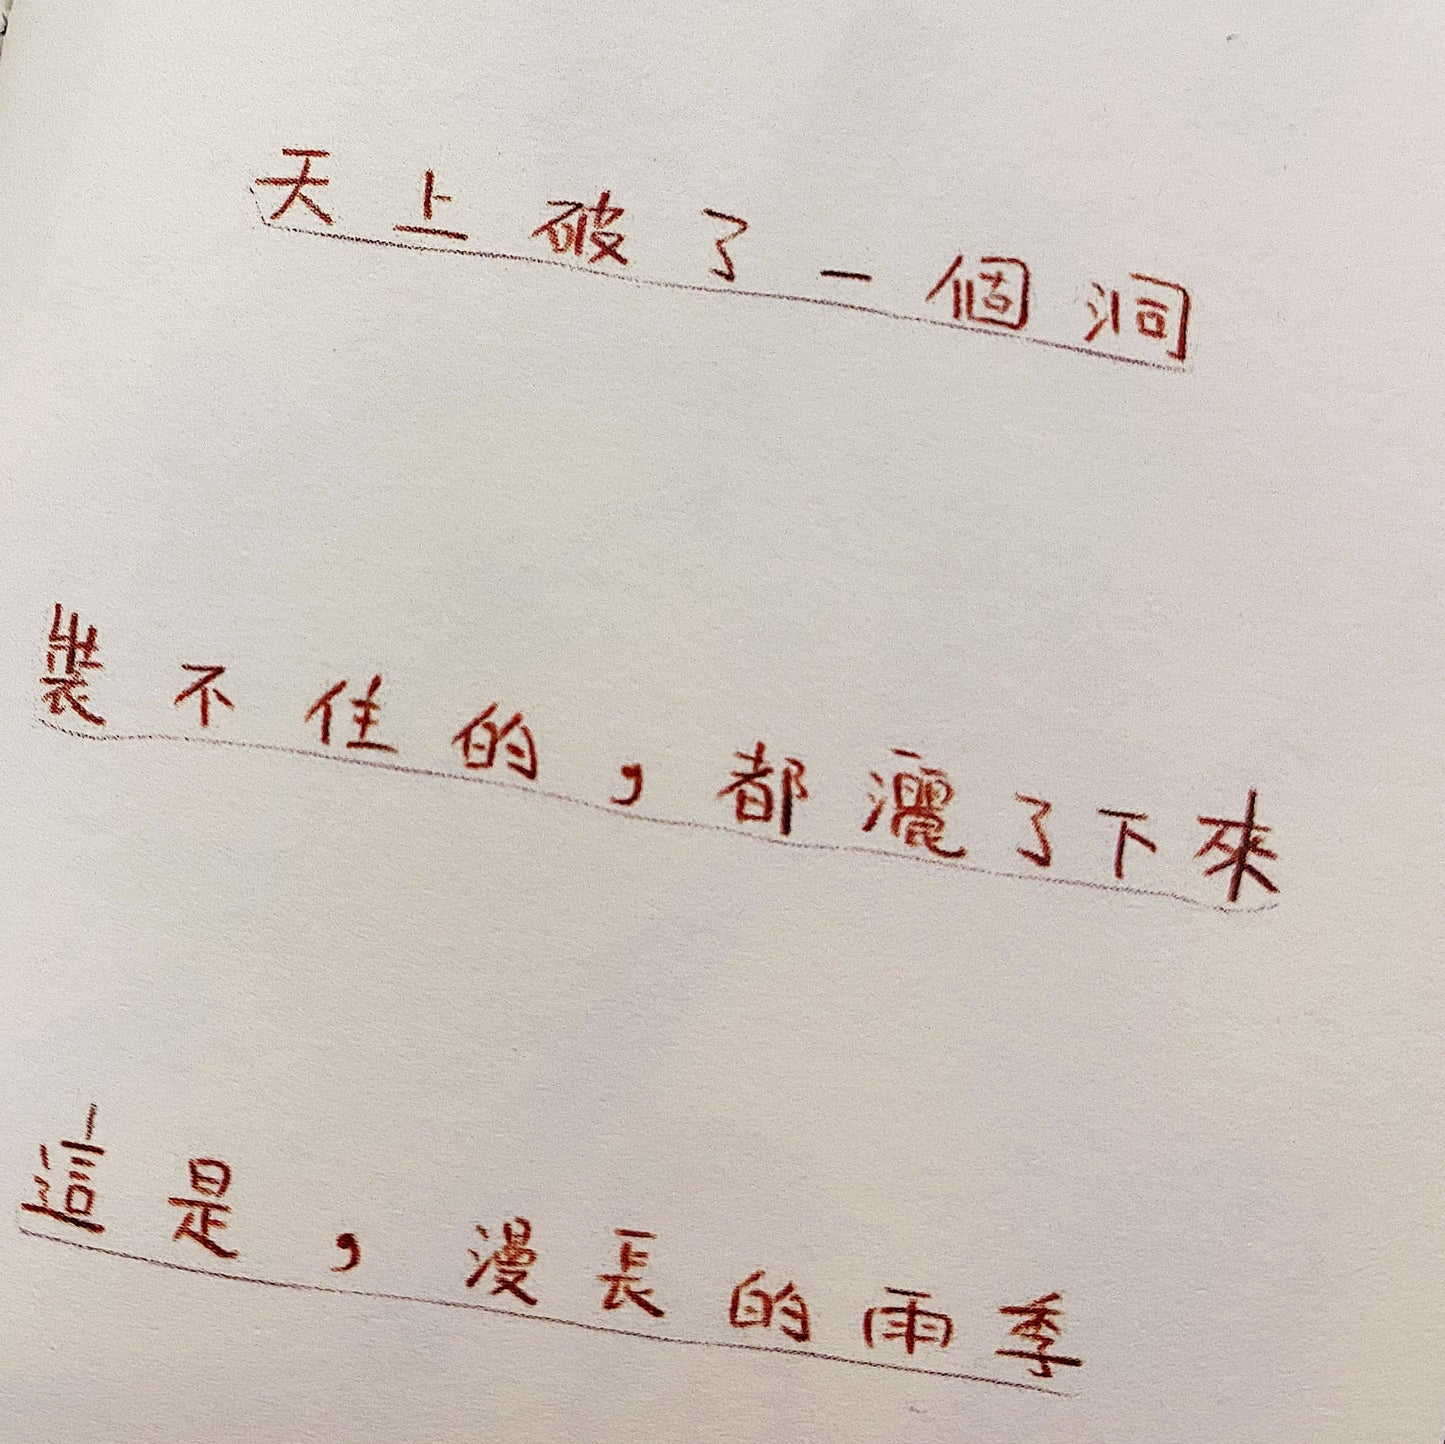 天上破了一個洞
裝不住的，都灑了下來
這是，漫長的雨季